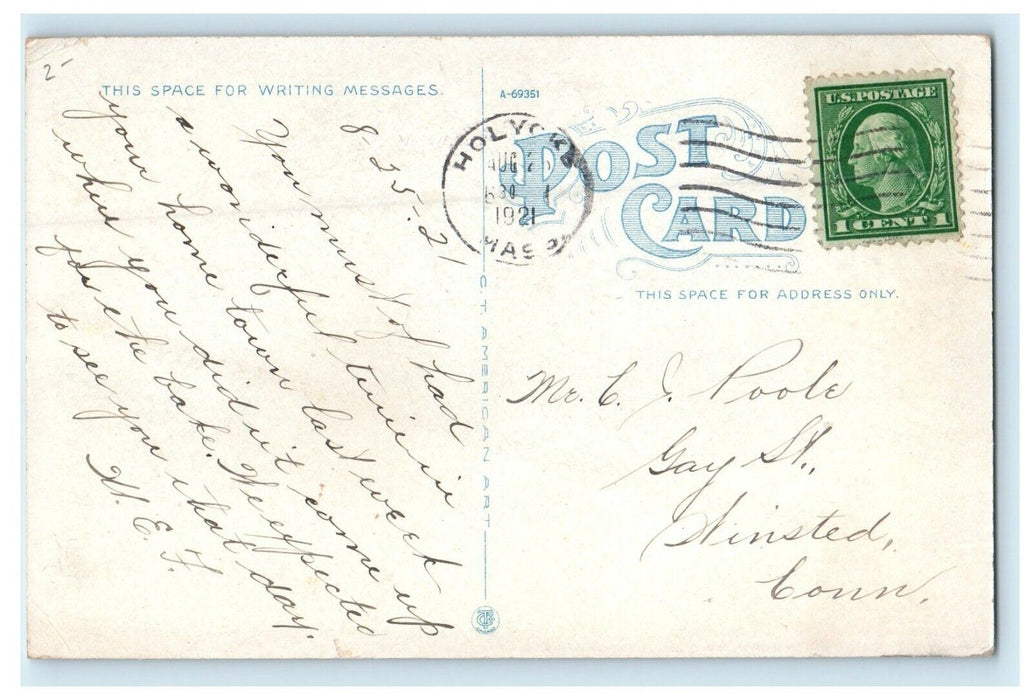 2-
THIS SPACE FOR WRITING MESSAGES.
8-25-21
You must of had
a wonderful time in
your home town last week
when you didn't come up
for the bake. We expected
to see you that day.
H. E. F.
A-69351
POST
CARD
HOLYOKE
AUG 2
630
1921
MASS
U.S. POSTAGE
1 CENT 1
THIS SPACE FOR ADDRESS ONLY.
C.T. AMERICAN ART
Mr. C. J. Poole
Gay St.,
Winsted,
Conn.